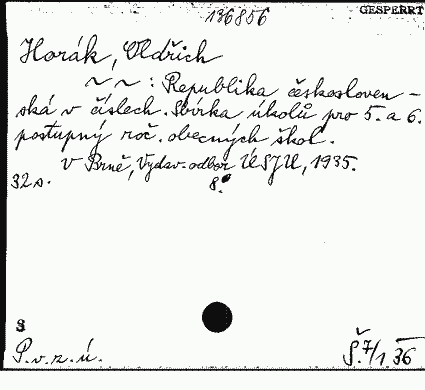 136856
GESPERRT
Horák, Oldřich
~ ~ : Republika českosloven-
ská v číslech. Sbírka úkolů pro 5. a 6.
postupný roč. obecných škol.
V Brně, Vydav. odbor ÚSJU, 1935.
32 s. 8°.
8
P.v.z.ú. Š.7/1.36